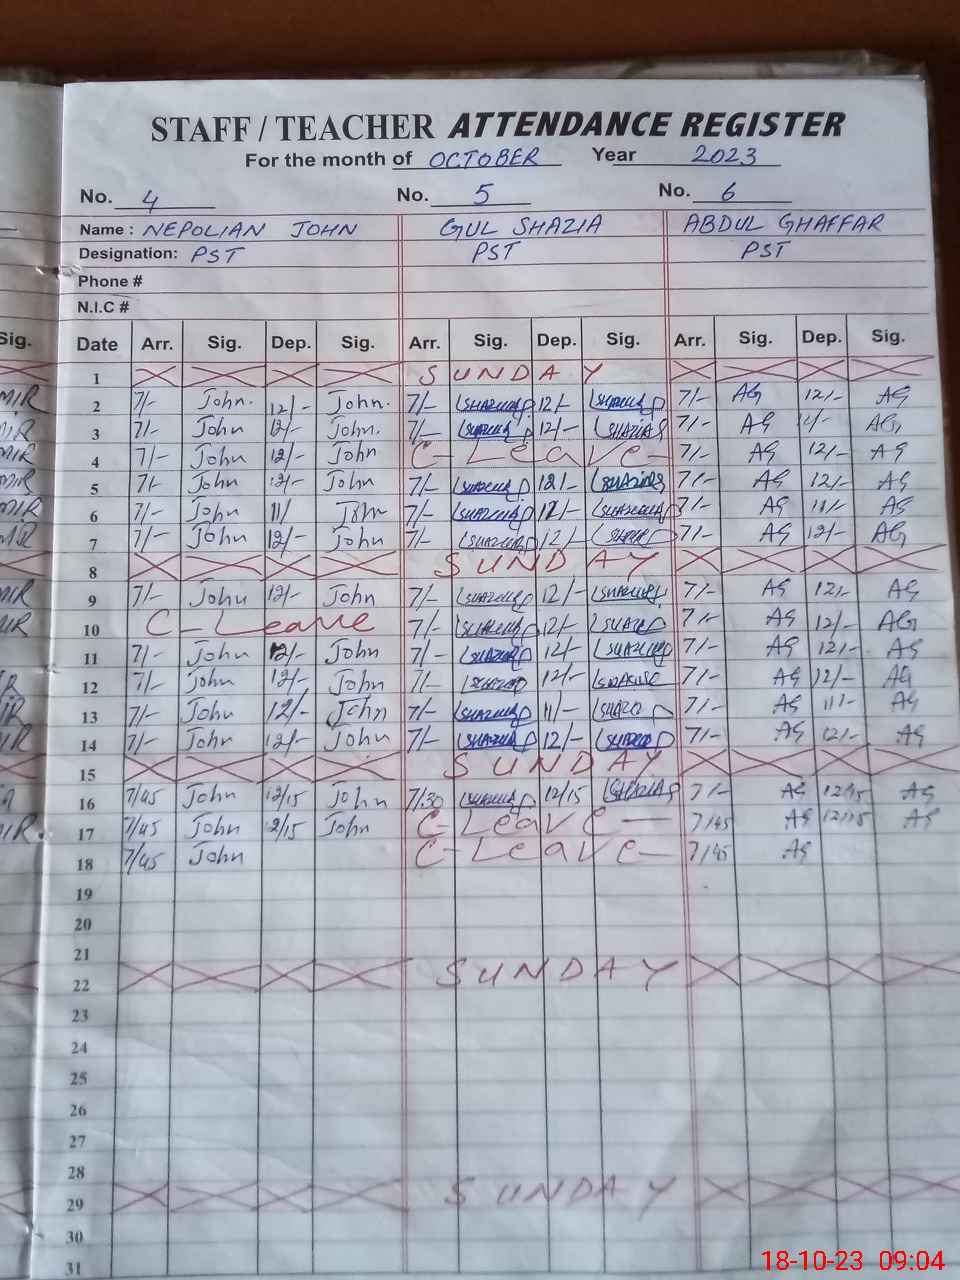 STAFF / TEACHER ATTENDANCE REGISTER
For the month of OCTOBER Year 2023
No. 4 No. 5 No. 6
Name : NEPOLIAN JOHN GUL SHAZIA ABDUL GHAFFAR
Designation: PST PST PST
Phone #
N.I.C #
Sig. Date Arr. Sig. Dep. Sig. Arr. Sig. Dep. Sig. Arr. Sig. Dep. Sig.
1 SUNDAY
MIR 2 7/- John. 12/- John. 7/- 12/- 7/- AG 12/- AG
MIR 3 7/- John 12/- John. 7/- 12/- SHAZIA 7/- AG AG
MIR 4 7/- John 12/- John C-Leave- 7/- AG 12/- AG
MIR 5 7/- John 12/- John 7/- 12/- 7/- AG 12/- AG
MIR 6 7/- John 11/ John 7/- 12/- 7/- AG 11/- AG
MIR 7 7/- John 12/- John 7/- 12/- 7/- AG 12/- AG
8 SUNDAY
MIR 9 7/- John 12/- John 7/- 12/- 7/- AG 12/- AG
10 C-Leave 7/- 12/- 7/- AG 12/- AG
11 7/- John 12/- John 7/- 12/- 7/- AG 12/- AG
12 7/- John 12/- John 7/- 12/- 7/- AG 12/- AG
13 7/- John 12/- John 7/- 11/- 7/- AG 11/- AG
14 7/- John 12/- John 7/- 12/- 7/- AG 12/- AG
15 SUNDAY
16 7/45 John 12/15 John 7/30 12/15 SHAZIA 7/- AG 12/15 AG
MIR 17 7/45 John 12/15 John C-Leave- 7/45 AG 12/15 AG
18 7/45 John C-Leave- 7/45 AG
19
20
21
22 SUNDAY
23
24
25
26
27
28
29 SUNDAY
30
31
18-10-23 09:04